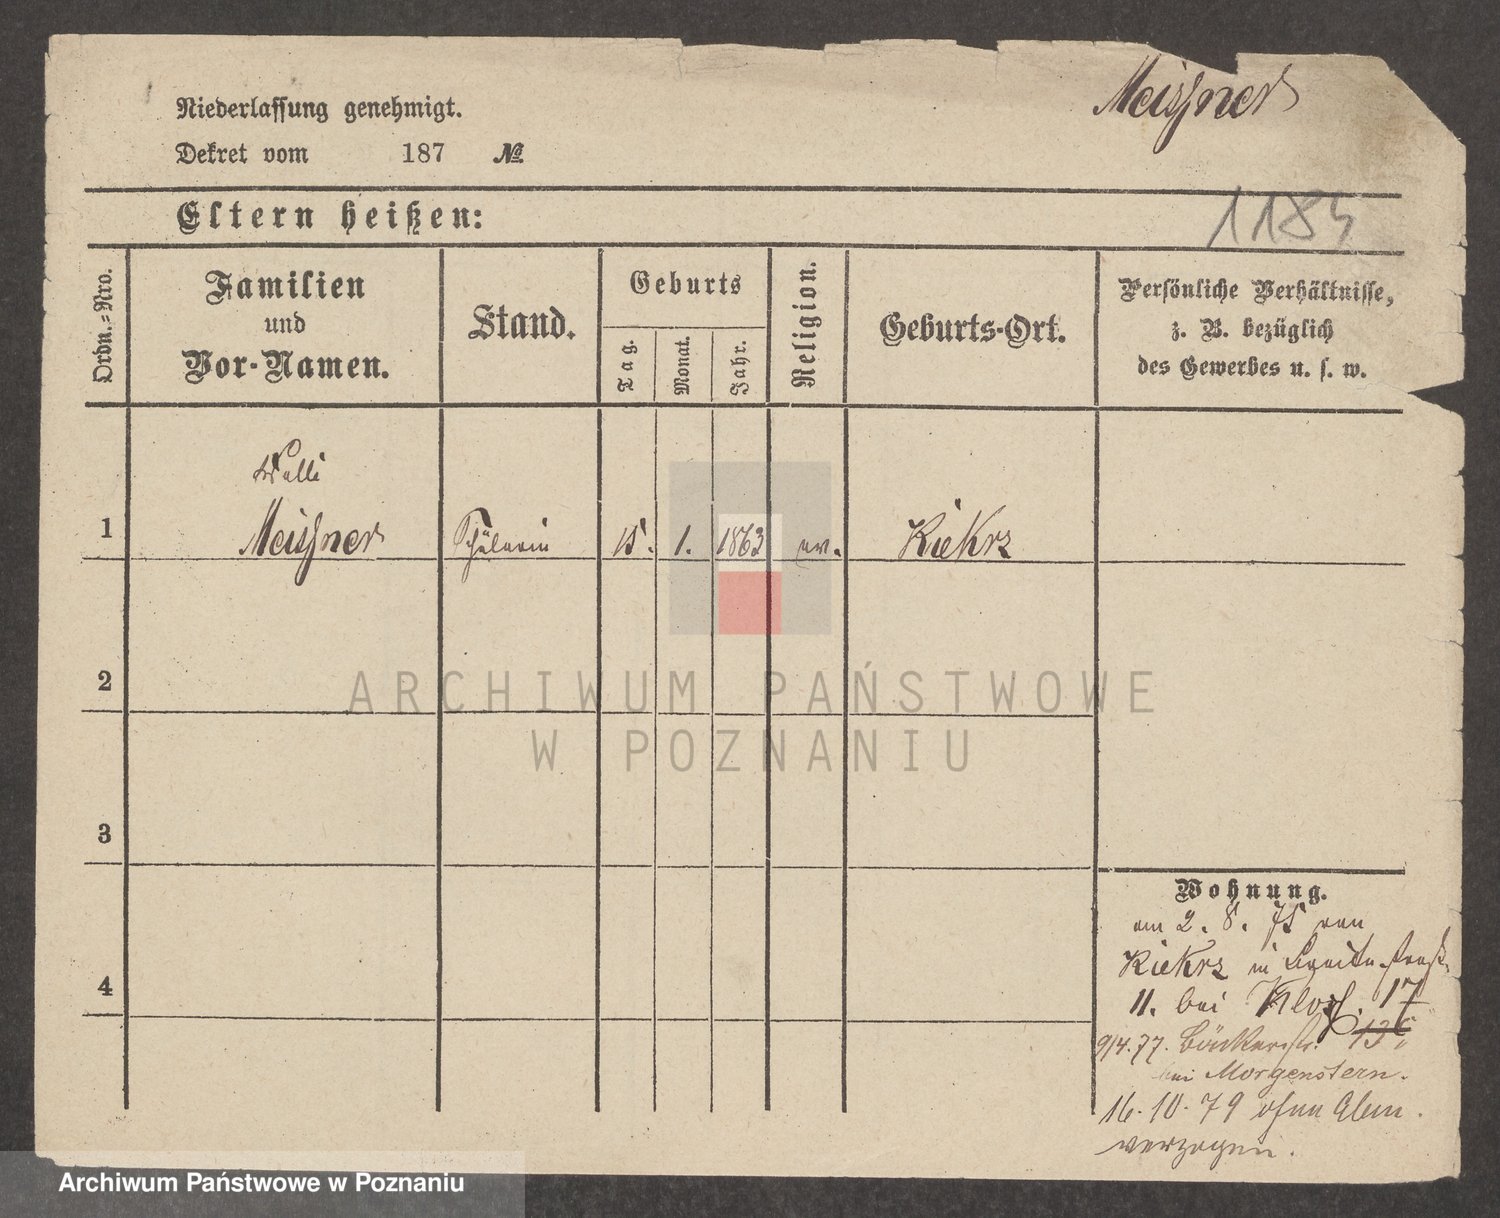 Meissner
Niederlassung genehmigt.
Dekret vom 187 №
1185
Eltern heißen:
Ordn.-Nro.
Familien
und
Vor-Namen.
Stand.
Geburts
Tag.
Monat.
Jahr.
Religion.
Geburts-Ort.
Persönliche Verhältnisse,
z. B. bezüglich
des Gewerbes u. s. w.
1
Walli
Meissner
Schülerin
15.
1.
1863
ev.
Kiekrz
2
3
4
Wohnung.
am 2. 8. 75 von
Kiekrz in
11. bei 17
9/4.77. Bäckerstr. 13
bei Morgenstern.
16.10.79 ohne Abm.
verzogen.
ARCHIWUM PAŃSTWOWE
W POZNANIU
Archiwum Państwowe w Poznaniu